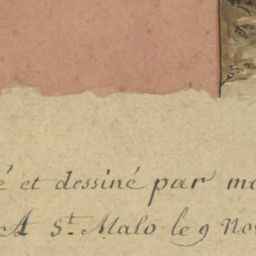 é et dessiné par mo
A St. Malo le 9 Nov